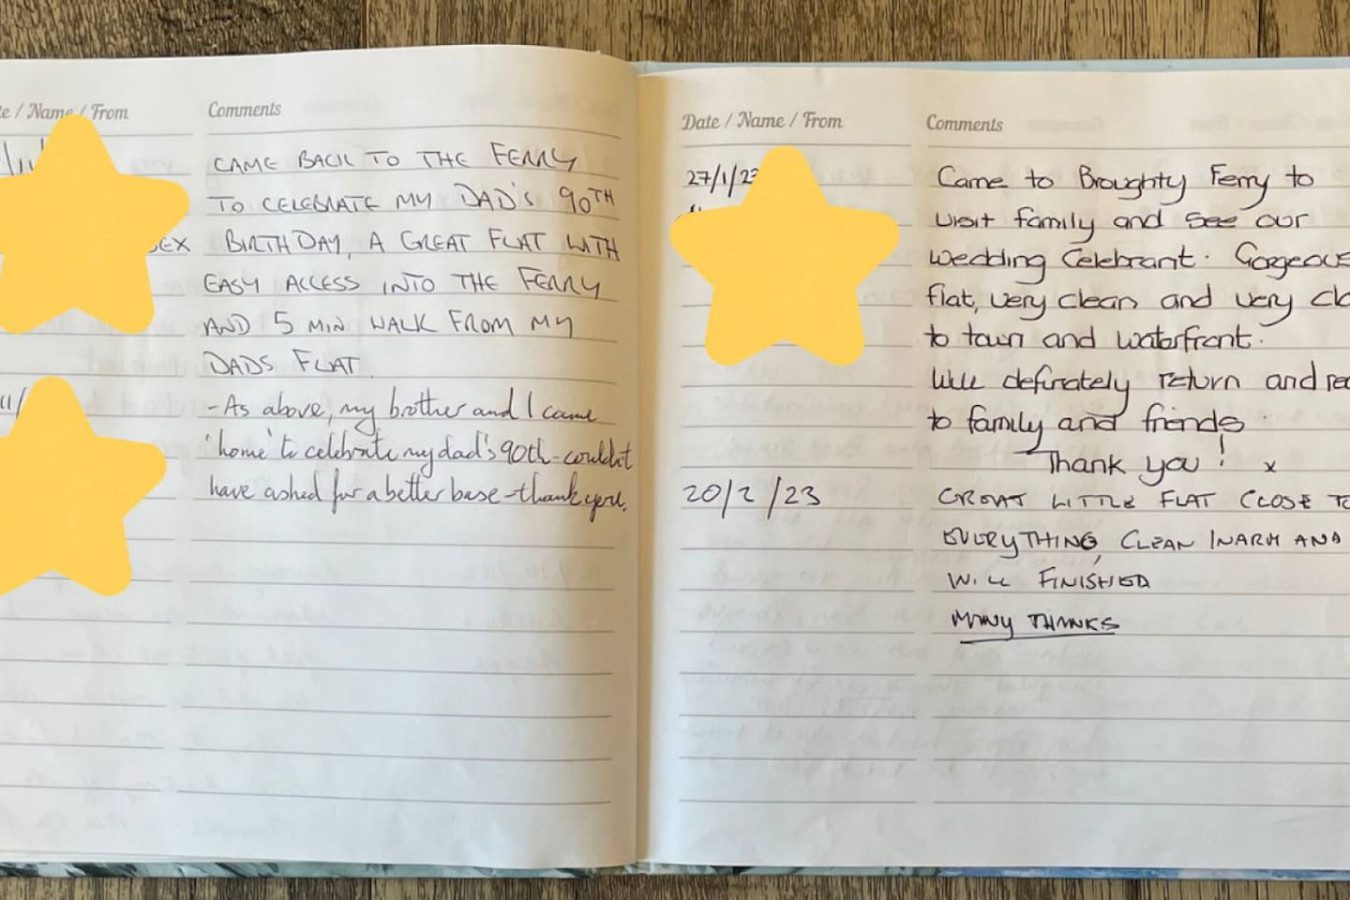 te / Name / From
Comments
CAME BACK TO THE FERRY
TO CELEBRATE MY DAD'S 90TH
SEX BIRTHDAY, A GREAT FLAT WITH
EASY ACCESS INTO THE FERRY
AND 5 MIN WALK FROM MY
DADS FLAT.
- As above, my brother and I came
'home' to celebrate my dad's 90th - couldn't
have asked for a better base - thank you.
Date / Name / From
Comments
27/1/23
Came to Broughty Ferry to
visit family and see our
wedding Celebrant. Gorgeous
flat, very clean and very clo
to town and waterfront.
Will definately return and rec
to family and friends.
Thank you! x
20/2/23
GREAT LITTLE FLAT CLOSE TO
EVERYTHING, CLEAN WARM AND
WILL FINISHED
MANY THANKS